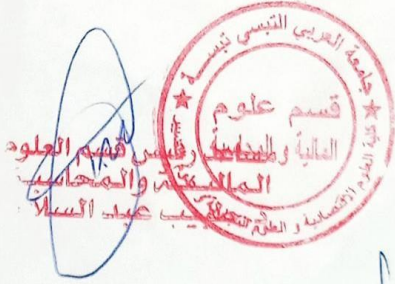 جامعة العربي التبسي تبسة
قسم علوم
المالية و المحاسبة
كلية العلوم الاقتصادية و العلوم التجارية
رئيس قسم العلوم
المالية والمحاسبة
عبد السلا